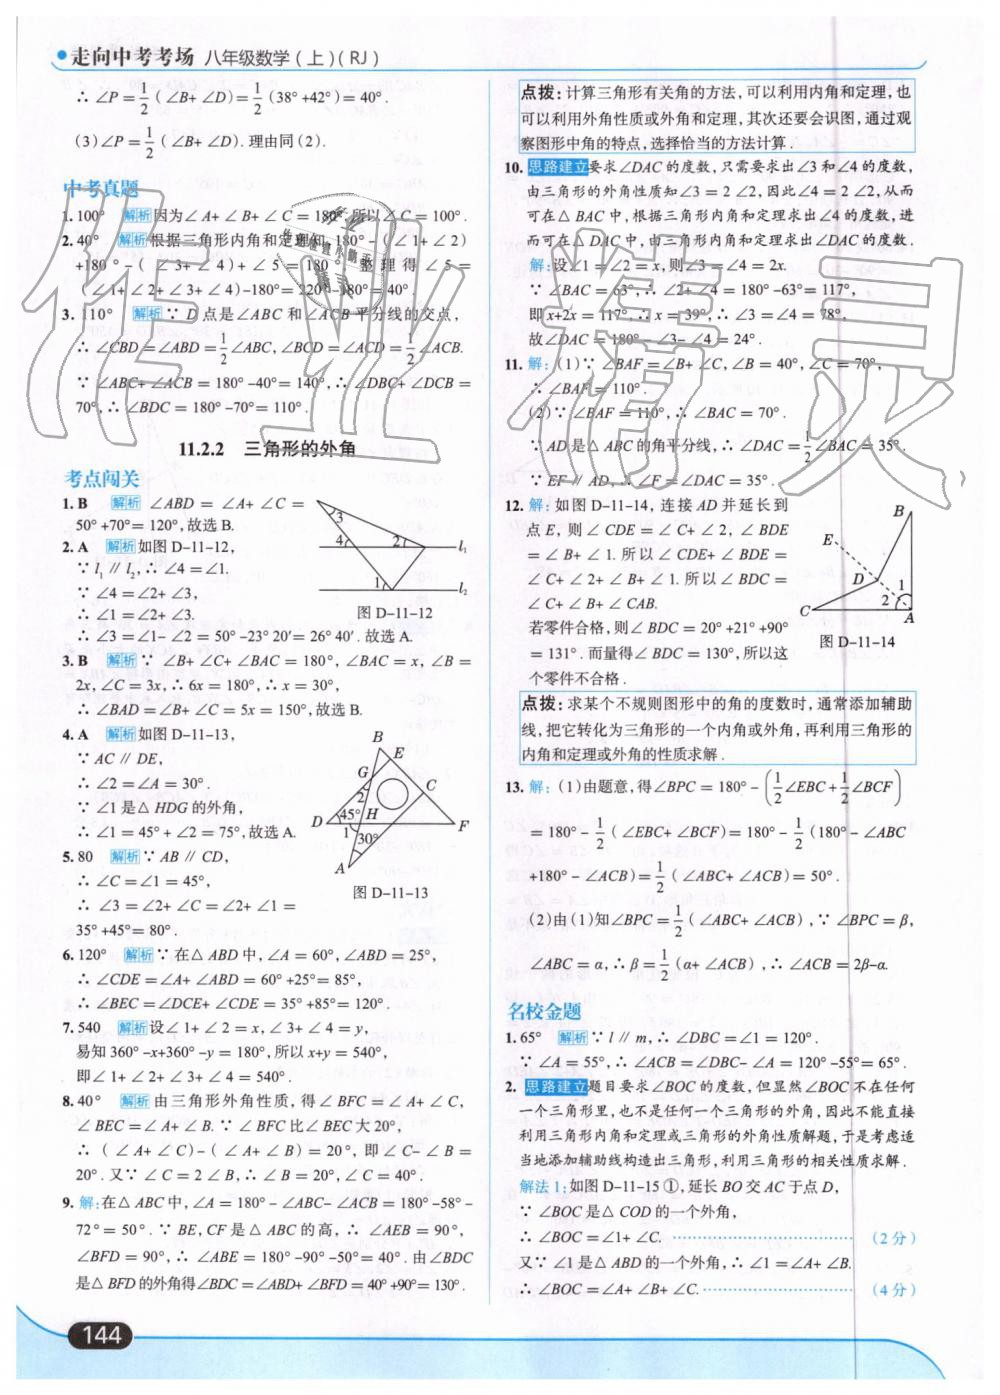 走向中考考场 八年级数学(上)(RJ)
∴ ∠P=1/2(∠B+∠D)=1/2(38°+42°)=40°.
(3)∠P=1/2(∠B+∠D).理由同(2).
中考真题
1. 100° 解析 因为∠A+∠B+∠C=180°,所以∠C=100°.
2. 40° 解析 根据三角形内角和定理知,180°-(∠1+∠2)
+180°-(∠3+∠4)+∠5=180°,整理得∠5=
∠1+∠2+∠3+∠4)-180°=220°-180°=40°.
3. 110° 解析 ∵ D点是∠ABC和∠ACB平分线的交点,
∴ ∠CBD=∠ABD=1/2∠ABC,∠BCD=∠ACD=1/2∠ACB.
∵ ∠ABC+∠ACB=180°-40°=140°,∴ ∠DBC+∠DCB=
70°,∴ ∠BDC=180°-70°=110°.
11.2.2 三角形的外角
考点闯关
1. B 解析 ∠ABD=∠A+∠C=
50°+70°=120°,故选B.
2. A 解析 如图D-11-12,
∵ l₁∥l₂,∴ ∠4=∠1.
∵ ∠4=∠2+∠3,
∴ ∠1=∠2+∠3.
∴ ∠3=∠1-∠2=50°-23°20′=26°40′.故选A.
3
4
2
l₁
1
l₂
图D-11-12
3. B 解析 ∵ ∠B+∠C+∠BAC=180°,∠BAC=x,∠B=
2x,∠C=3x,∴ 6x=180°,∴ x=30°,
∴ ∠BAD=∠B+∠C=5x=150°,故选B.
4. A 解析 如图D-11-13,
∵ AC∥DE,
∴ ∠2=∠A=30°.
∵ ∠1是△HDG的外角,
∴ ∠1=45°+∠2=75°,故选A.
B
E
G
C
2
D
45°
H
F
1
30°
A
图D-11-13
5. 80 解析 ∵ AB∥CD,
∴ ∠C=∠1=45°,
∴ ∠3=∠2+∠C=∠2+∠1=
35°+45°=80°.
6. 120° 解析 ∵ 在△ABD中,∠A=60°,∠ABD=25°,
∴ ∠CDE=∠A+∠ABD=60°+25°=85°,
∴ ∠BEC=∠DCE+∠CDE=35°+85°=120°.
7. 540 解析 设∠1+∠2=x,∠3+∠4=y,
易知360°-x+360°-y=180°,所以x+y=540°,
即∠1+∠2+∠3+∠4=540°.
8. 40° 解析 由三角形外角性质,得∠BFC=∠A+∠C,
∠BEC=∠A+∠B.∵ ∠BFC比∠BEC大20°,
∴ (∠A+∠C)-(∠A+∠B)=20°,即∠C-∠B=
20°.又∵ ∠C=2∠B,∴ ∠B=20°,∠C=40°.
9. 解:在△ABC中,∠A=180°-∠ABC-∠ACB=180°-58°-
72°=50°.∵ BE,CF是△ABC的高,∴ ∠AEB=90°,
∠BFD=90°,∴ ∠ABE=180°-90°-50°=40°.由∠BDC
是△BFD的外角得∠BDC=∠ABD+∠BFD=40°+90°=130°.
点拨:计算三角形有关角的方法,可以利用内角和定理,也
可以利用外角性质或外角和定理,其次还要会识图,通过观
察图形中角的特点,选择恰当的方法计算.
10. 思路建立 要求∠DAC的度数,只需要求出∠3和∠4的度数,
由三角形的外角性质知∠3=2∠2,因此∠4=2∠2,从而
可在△BAC中,根据三角形内角和定理求出∠4的度数,进
而可在△DAC中,由三角形内角和定理求出∠DAC的度数.
解:设∠1=∠2=x,则∠3=∠4=2x.
∵ ∠BAC=63°,∴ ∠2+∠4=180°-63°=117°,
即x+2x=117°,∴ x=39°,∴ ∠3=∠4=78°,
故∠DAC=180°-∠3-∠4=24°.
11. 解:(1)∵ ∠BAF=∠B+∠C,∠B=40°,∠C=70°,
∴ ∠BAF=110°.
(2)∵ ∠BAF=110°,∴ ∠BAC=70°.
∵ AD是△ABC的角平分线,∴ ∠DAC=1/2∠BAC=35°.
∵ EF∥AD,∴ ∠F=∠DAC=35°.
12. 解:如图D-11-14,连接AD并延长到
点E,则∠CDE=∠C+∠2,∠BDE
=∠B+∠1.所以∠CDE+∠BDE=
∠C+∠2+∠B+∠1.所以∠BDC=
∠C+∠B+∠CAB.
若零件合格,则∠BDC=20°+21°+90°
=131°.而量得∠BDC=130°,所以这
个零件不合格.
B
E
D
1
2
C
A
图D-11-14
点拨:求某个不规则图形中的角的度数时,通常添加辅助
线,把它转化为三角形的一个内角或外角,再利用三角形的
内角和定理或外角的性质求解.
13. 解:(1)由题意,得∠BPC=180°-(1/2∠EBC+1/2∠BCF)
=180°-1/2(∠EBC+∠BCF)=180°-1/2(180°-∠ABC
+180°-∠ACB)=1/2(∠ABC+∠ACB)=50°.
(2)由(1)知∠BPC=1/2(∠ABC+∠ACB),∵ ∠BPC=β,
∠ABC=α,∴ β=1/2(α+∠ACB),∴ ∠ACB=2β-α.
名校金题
1. 65° 解析 ∵ l∥m,∴ ∠DBC=∠1=120°.
∵ ∠A=55°,∴ ∠ACB=∠DBC-∠A=120°-55°=65°.
2. 思路建立 题目要求∠BOC的度数,但显然∠BOC不在任何
一个三角形里,也不是任何一个三角形的外角,因此不能直接
利用三角形内角和定理或三角形的外角性质解题,于是考虑适
当地添加辅助线构造出三角形,利用三角形的相关性质求解.
解法1:如图D-11-15①,延长BO交AC于点D,
∵ ∠BOC是△COD的一个外角,
∴ ∠BOC=∠1+∠C.……………………(2分)
又∵ ∠1是△ABD的一个外角,∴ ∠1=∠A+∠B.
∴ ∠BOC=∠A+∠B+∠C.…………………(4分)
144
作业精灵